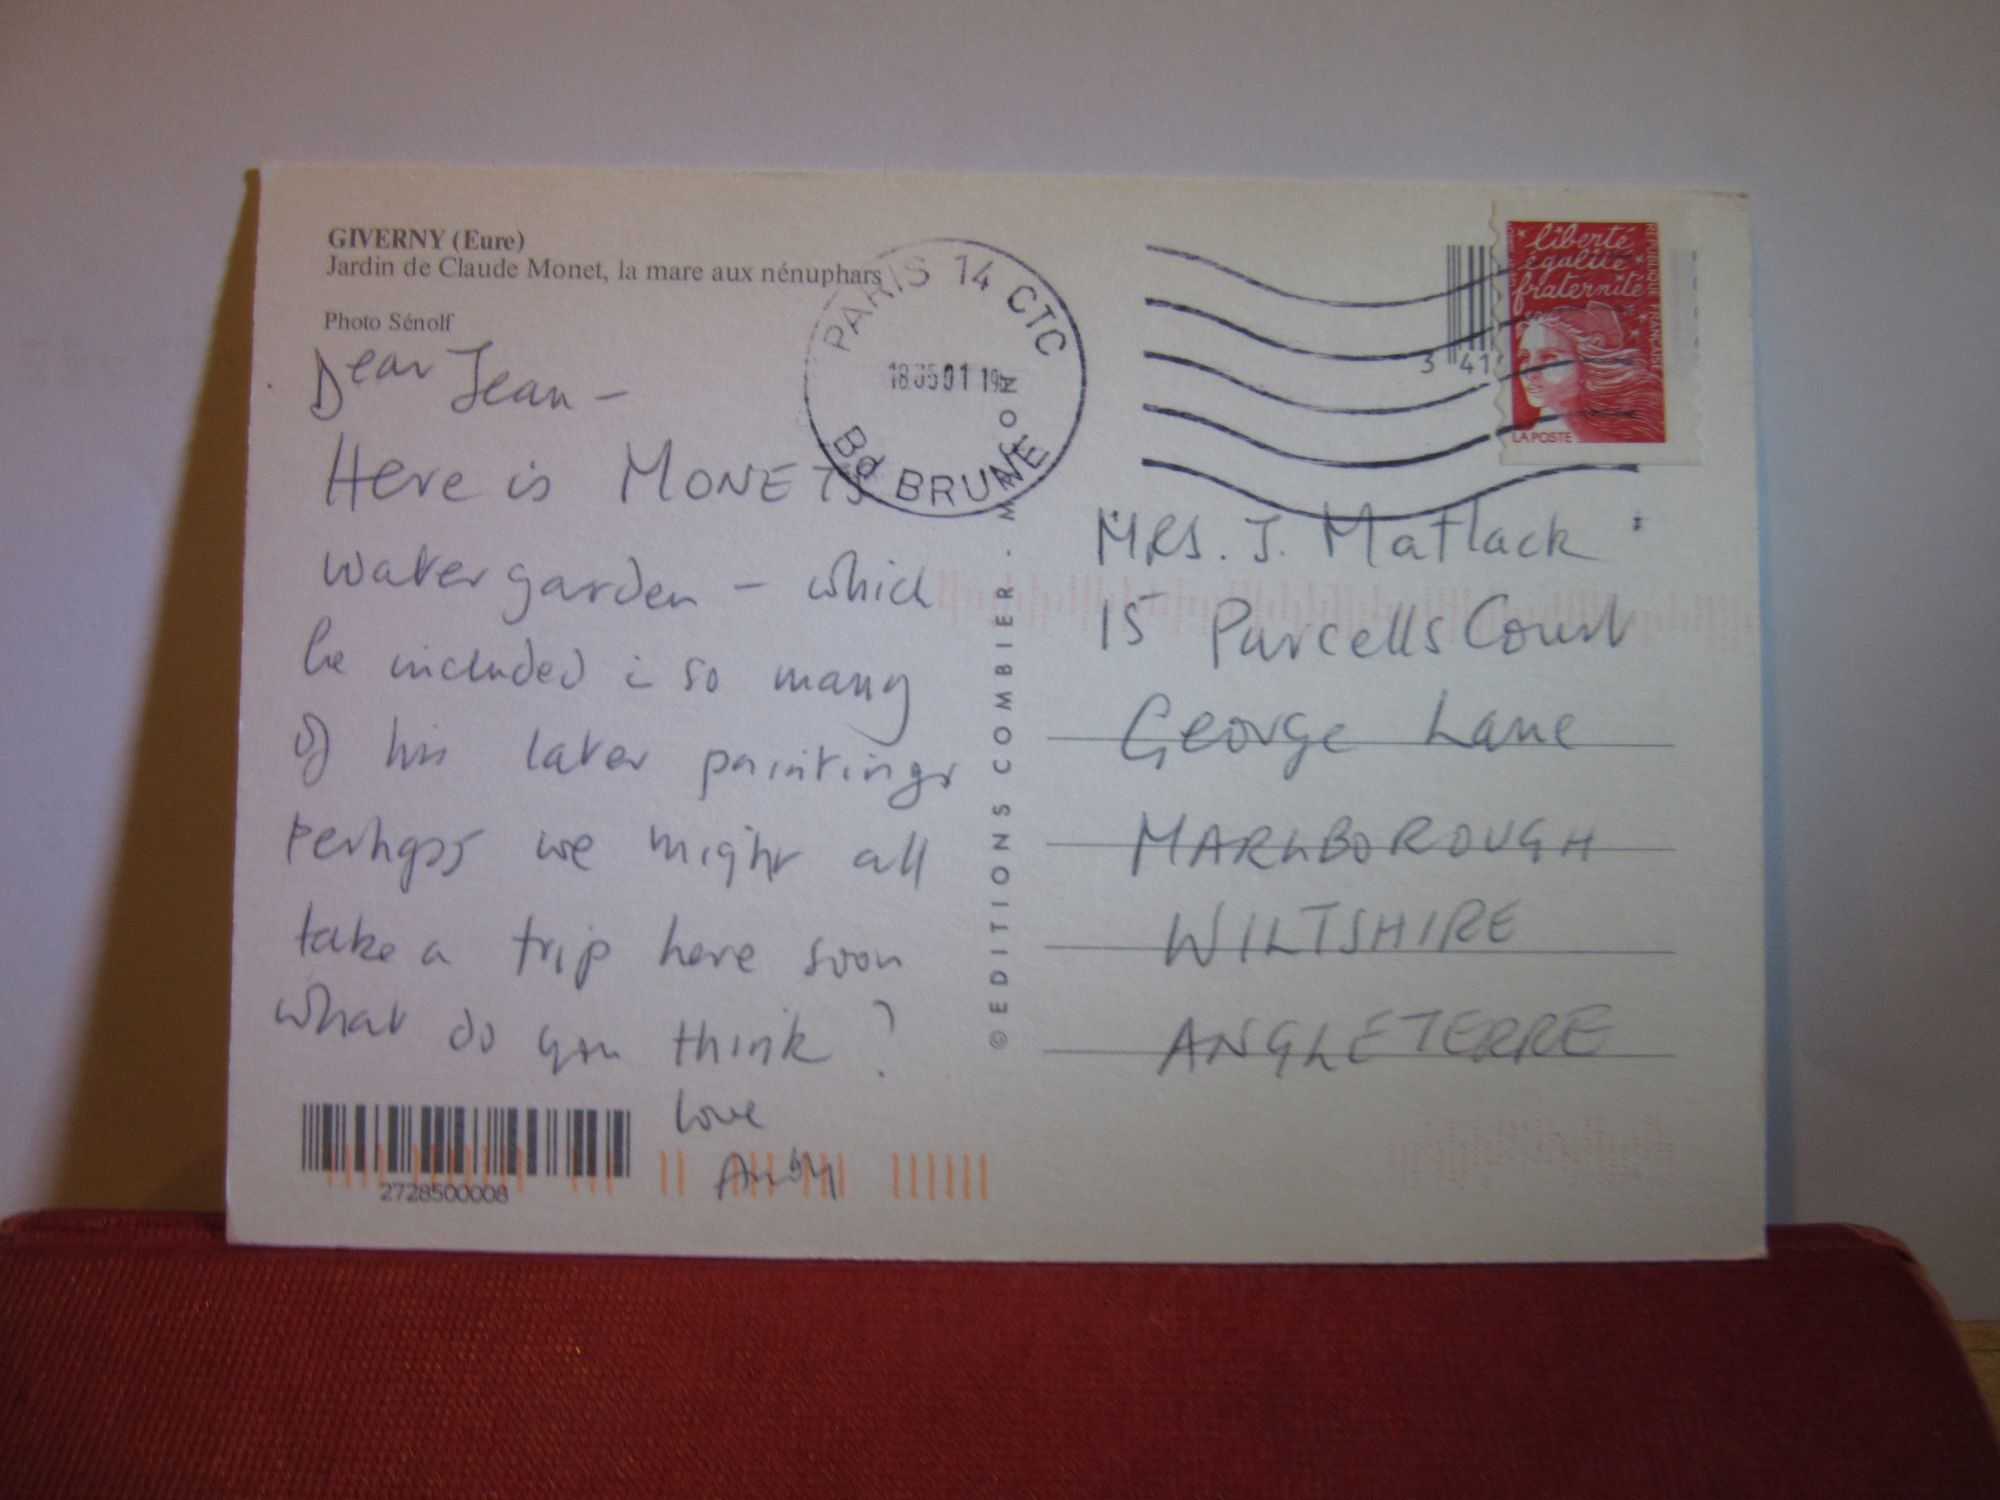 GIVERNY (Eure)
Jardin de Claude Monet, la mare aux nénuphars
Photo Sénolf
Dear Jean –
Here is MONETS
water garden – which
he included i so many
of his later paintings
perhaps we might all
take a trip here soon
what do you think?
love
2728500008
PARIS 14 CTC
Bd BRUNE
© EDITIONS COMBIER - MACON
3 41
liberté
égalité
fraternité
RÉPUBLIQUE FRANÇAISE
LA POSTE
MRS. J. Matlack
15 Purcells Court
George Lane
MARLBOROUGH
WILTSHIRE
ANGLETERRE